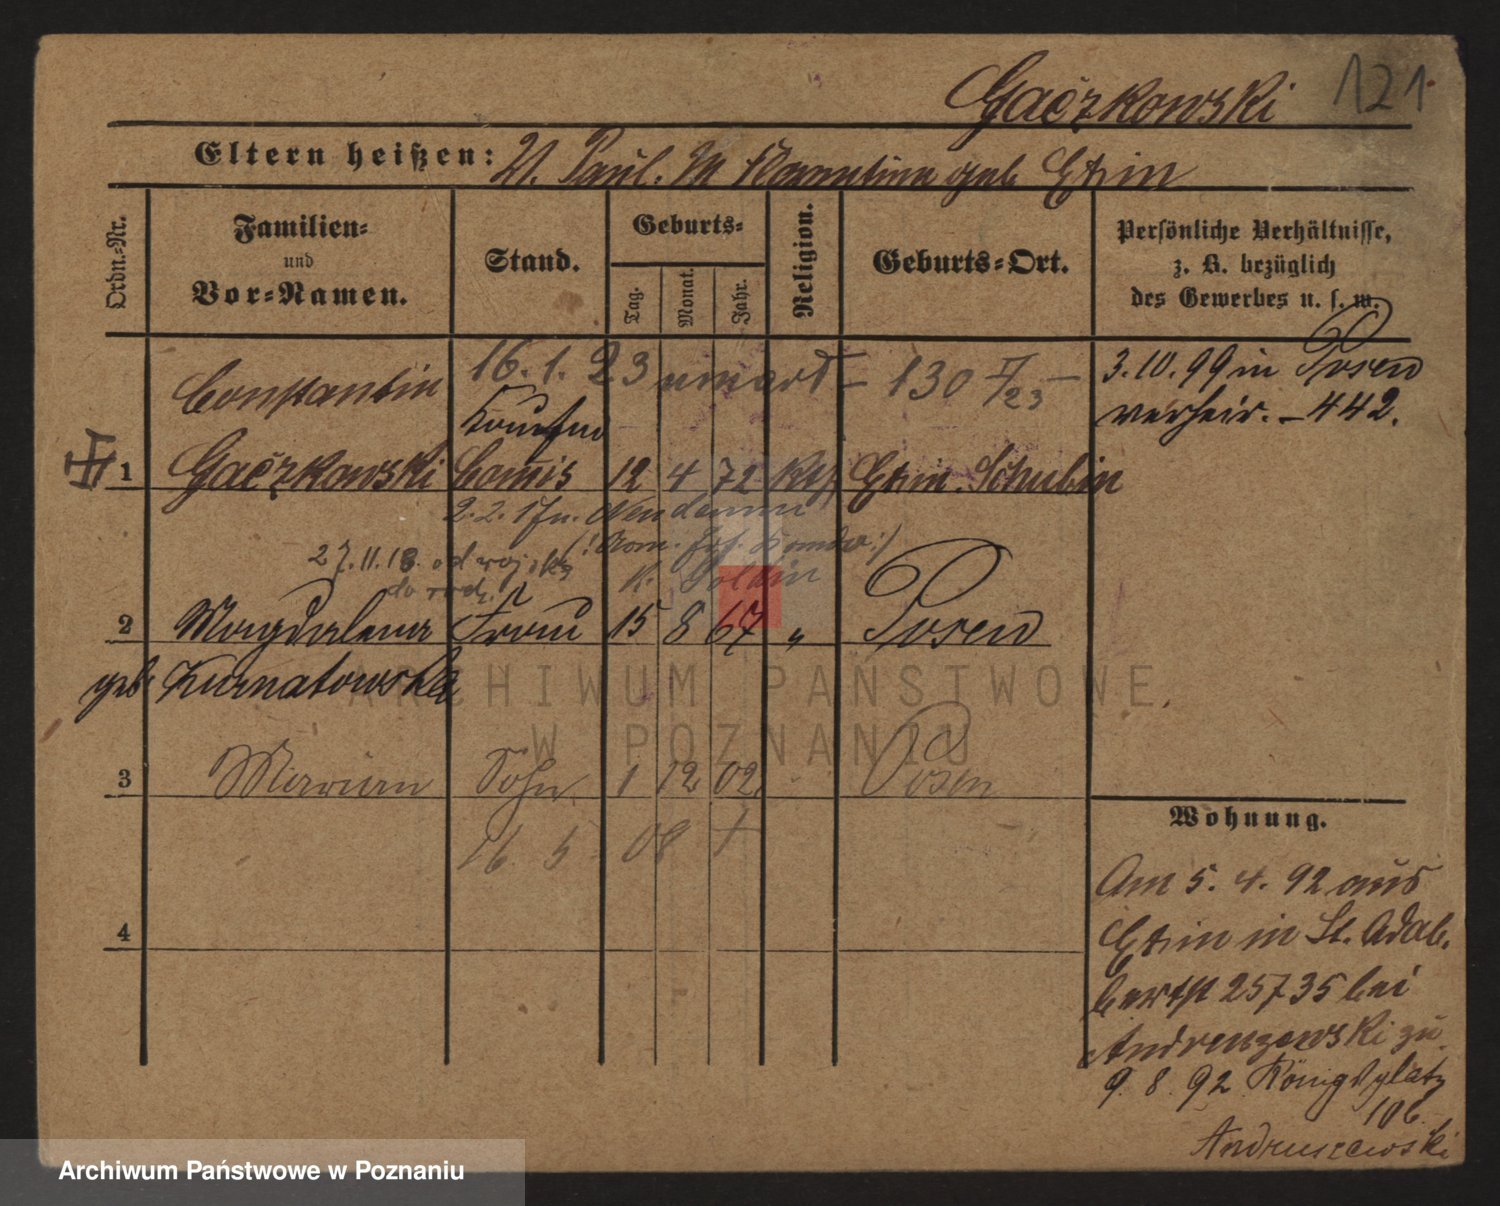 Gaczkowski 121
Eltern heißen: V. Paul. M Florentine geb Exin
Ordn.-Nr.
Familien-
und
Vor-Namen.
Stand.
Geburts-
Tag.
Monat.
Jahr.
Religion.
Geburts-Ort.
Persönliche Verhältnisse,
z. B. bezüglich
des Gewerbes u. s. w.
16. 1. 23 – 130
Constantin
3. 10. 99 in Posen
verheir. – 442.
Kaufm
1 Gaczkowski Comis 12 4 72 Kth Exin. Schubin
2. 2. 17 n. Neudamm
27. 11. 18. od wojska
K. Soldin
2 Magdalena Frau 15 8 67 " Posen
geb Kurnatowska
3 Marian Sohn 1 12 02 Posen
16 5 08 †
4
Wohnung.
Am 5. 4. 92 aus
Exin in St. Adal-
bertst 25735 bei
Andruszewski zu
9. 8. 92 Königsplatz
10b.
Andruszewski
ARCHIWUM PAŃSTWOWE
W POZNANIU
Archiwum Państwowe w Poznaniu